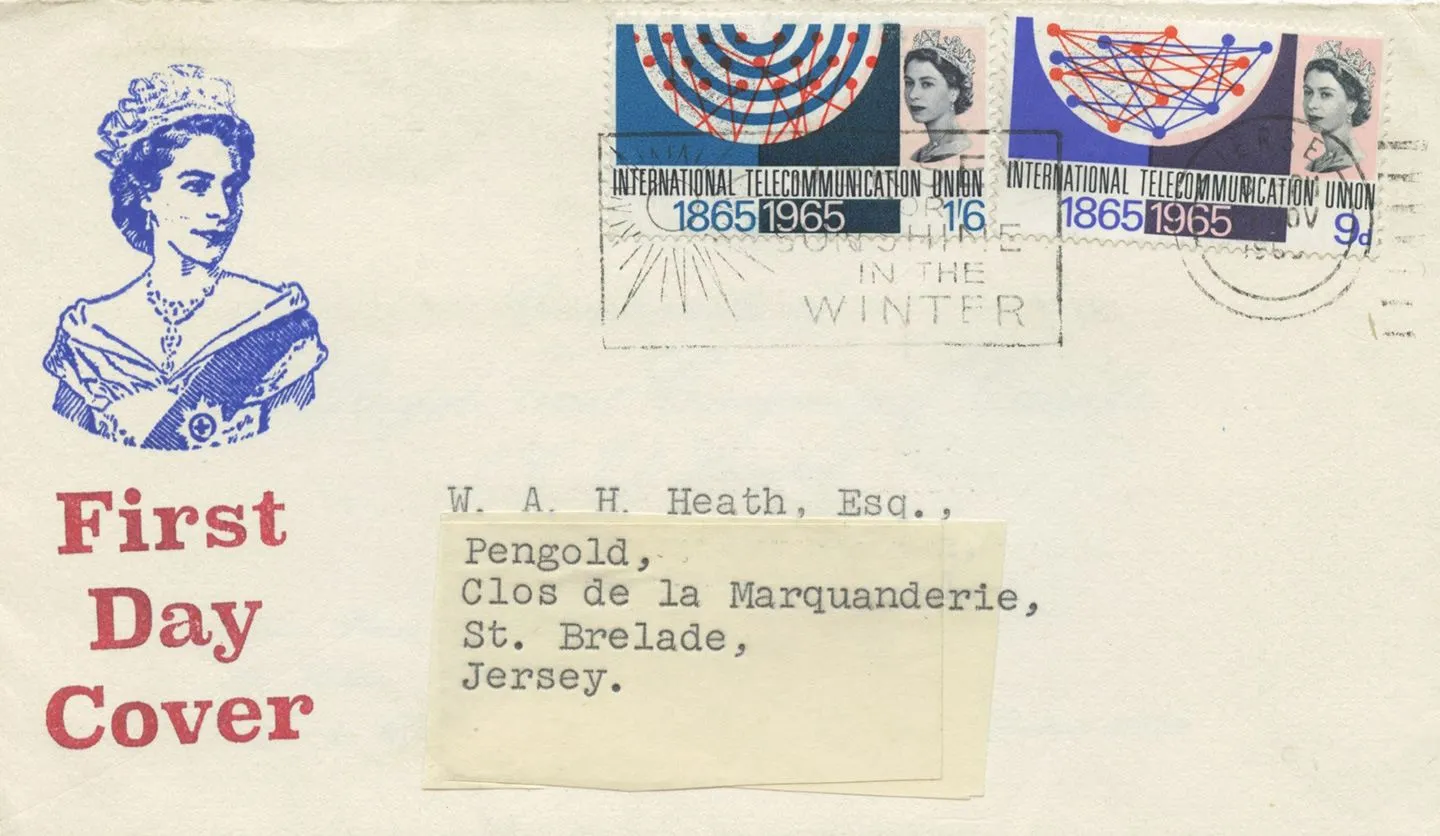 INTERNATIONAL TELECOMMUNICATION UNION
1865 1965 1'6
INTERNATIONAL TELECOMMUNICATION UNION
1865 1965 9d
FOR
SUNSHINE
IN THE
WINTER
NOV
First
Day
Cover
W. A. H. Heath, Esq.,
Pengold,
Clos de la Marquanderie,
St. Brelade,
Jersey.